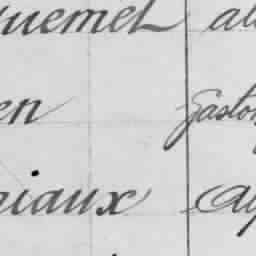 uemet al
en Gaston
iaux Au